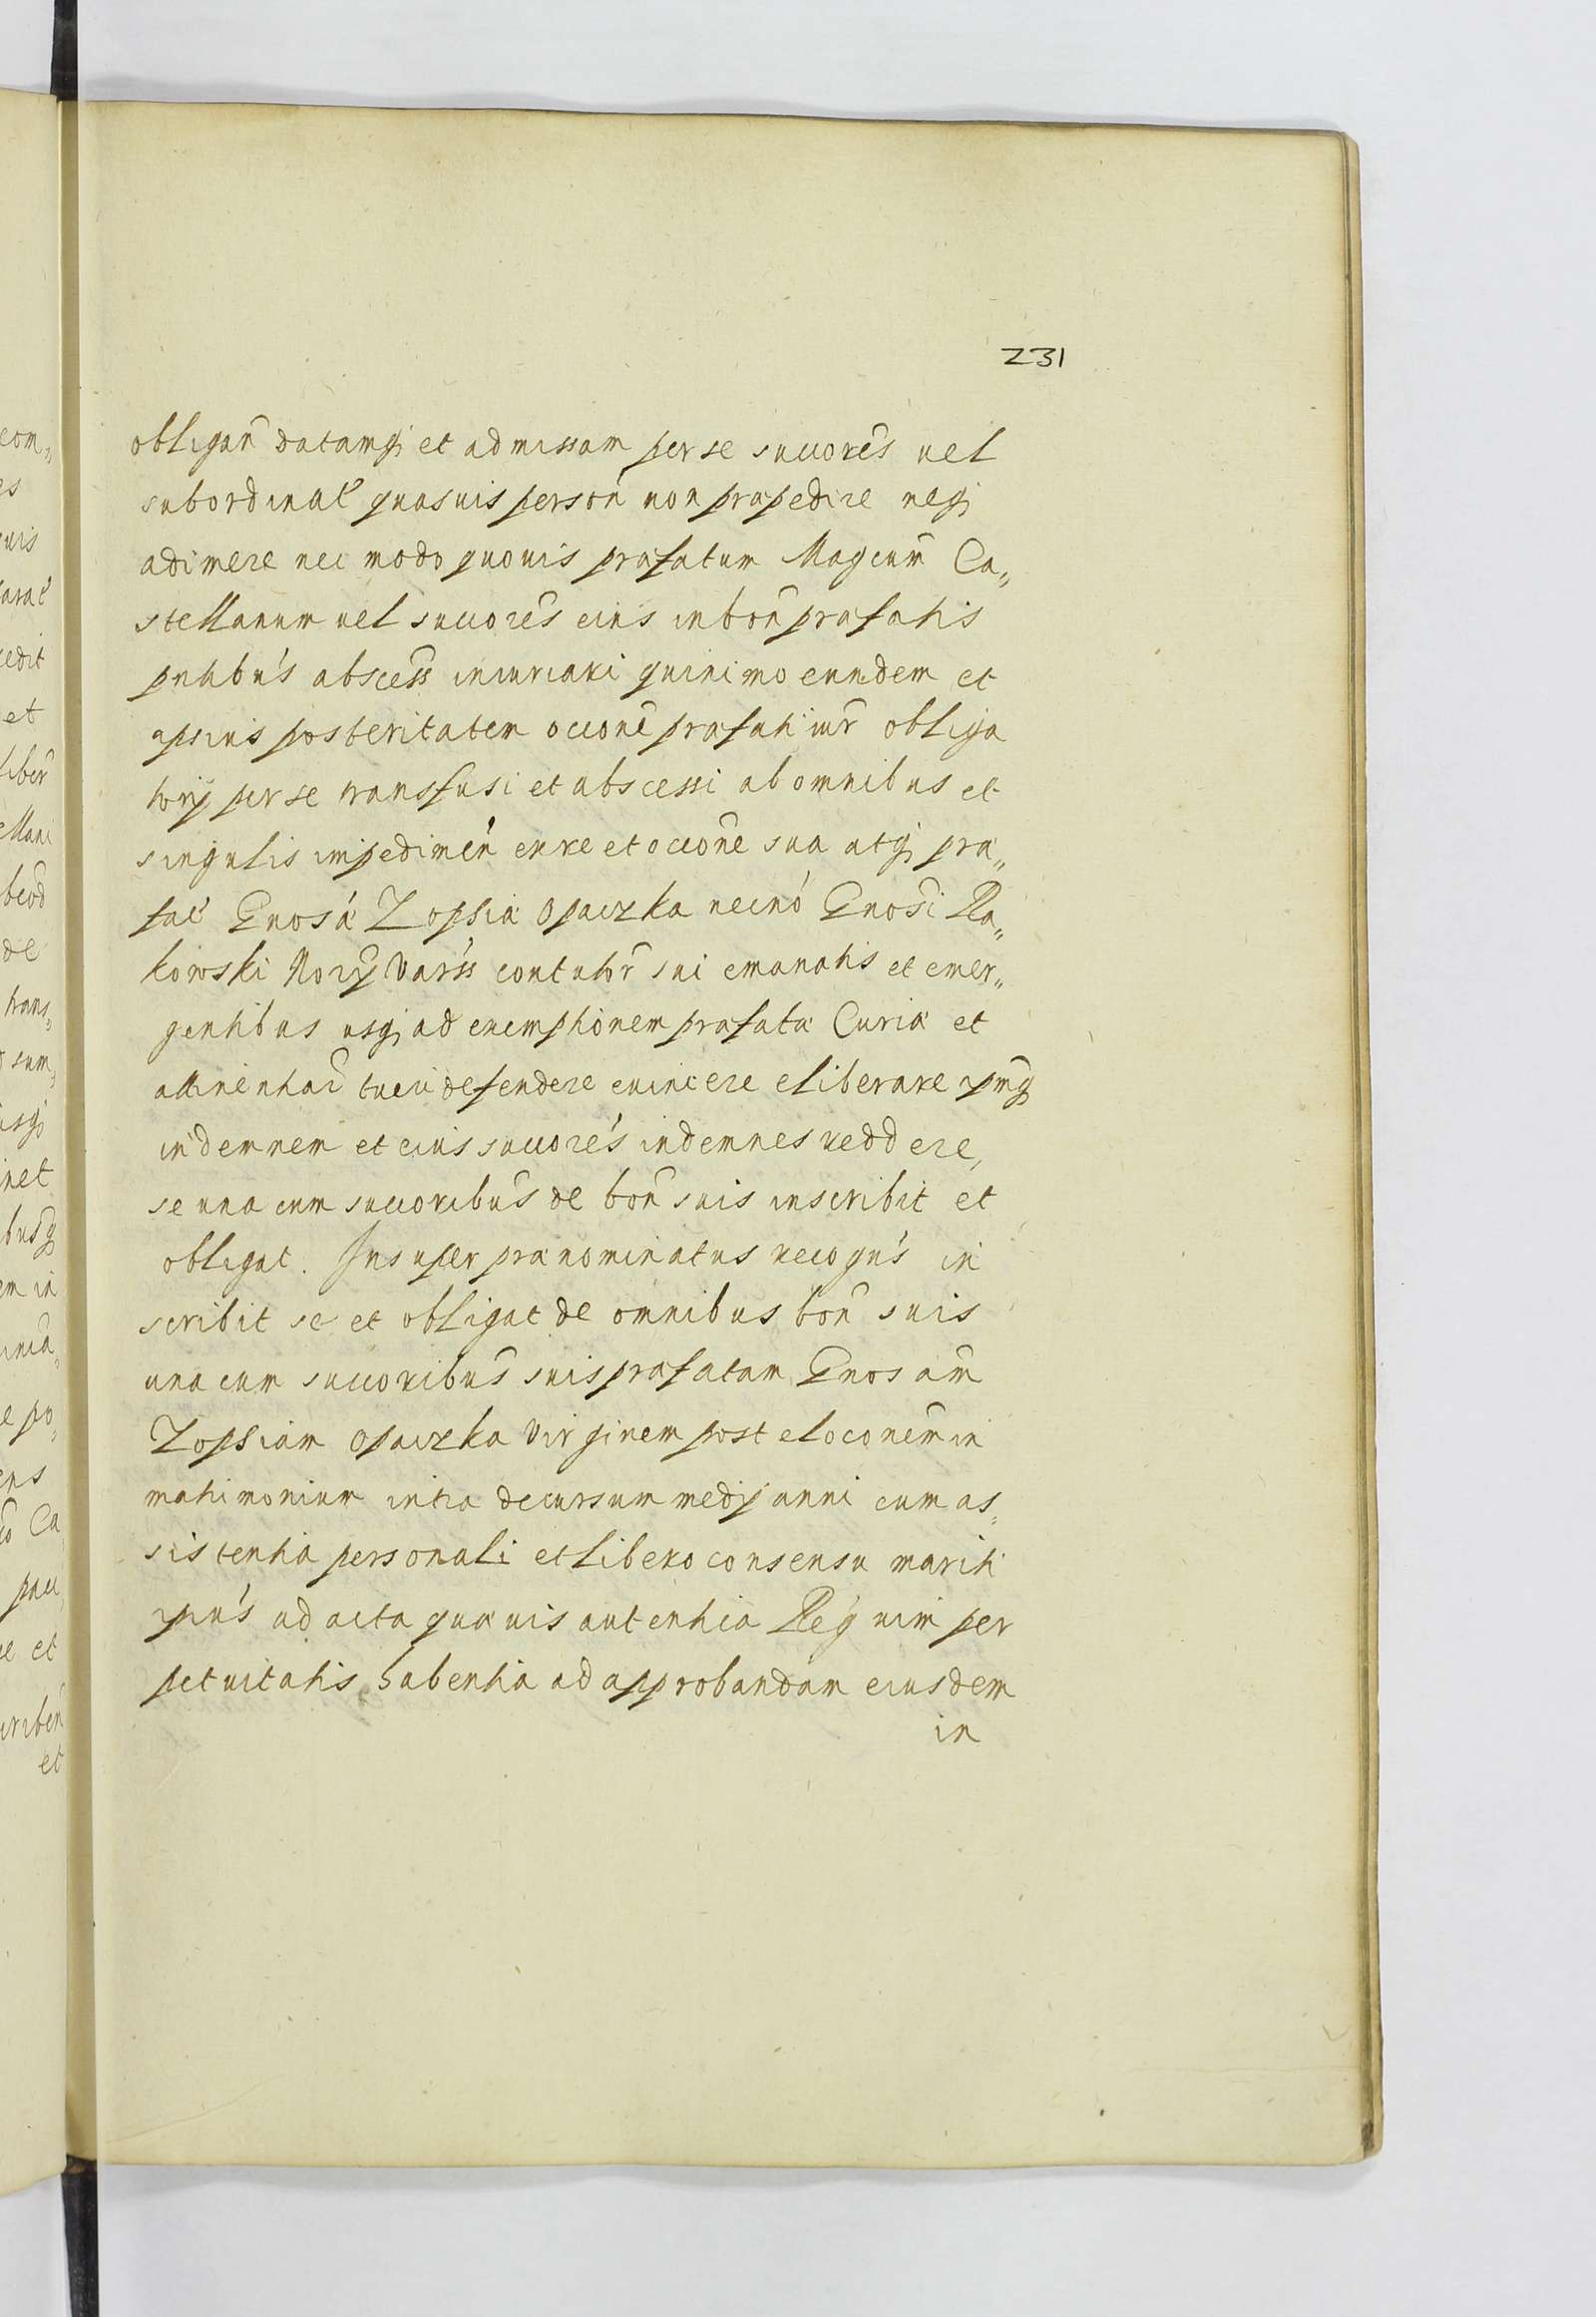 231
obligan̄ datamq; et admissam per se succores̄ uel
subordinat̄ quasuis person̄ non præpedire neq;
adimere nec modo quouis præfatum Magcum̄ Ca„
stellanum uel succores̄ eius in bon̄ præfatis
pntibus̄ abscess̄ iniuriari quinimo eundem et
ipsius posteritatem occone præfati iur̄ obliga
torij per se transfusi et abscessi ab omnibus et
singulis impedimen̄ ex re et occone sua atq; præ„
fat̄ Gnosæ Zopsiæ Opaczka necno Gnosi Ra„
kowski Norij Vars̄s contutor̄ sui emanatis et emer„
gentibus usq; ad exemptionem præfatæ Curiæ et
attinentiar̄ tueri defendere euincere eliberare ipmq;
indemnem et eius succores̄ indemnes reddere,
se una cum succoribus̄ de bon̄ suis inscribit et
obligat. Insuper prænominatus recogns̄ in
scribit se et obligat de omnibus bon̄ suis
una cum succoribus̄ suis præfatam Gnosam̄
Zopsiam Opaczka Virginem post eloconem̄ in
matrimonium intra decursum medij anni cum as„
sistentia personali et libero consensu mariti
ipius̄ ad acta quæuis autentica Reg uim per
petuitatis habentia ad approbandam eiusdem
in
eom„
es
uis
arat̄
cedit
et
liber̄
ellani
de
trans„
sum„
usq;
inet
busq;
em in
e po„
ens
Ca
e et
criben̄
et